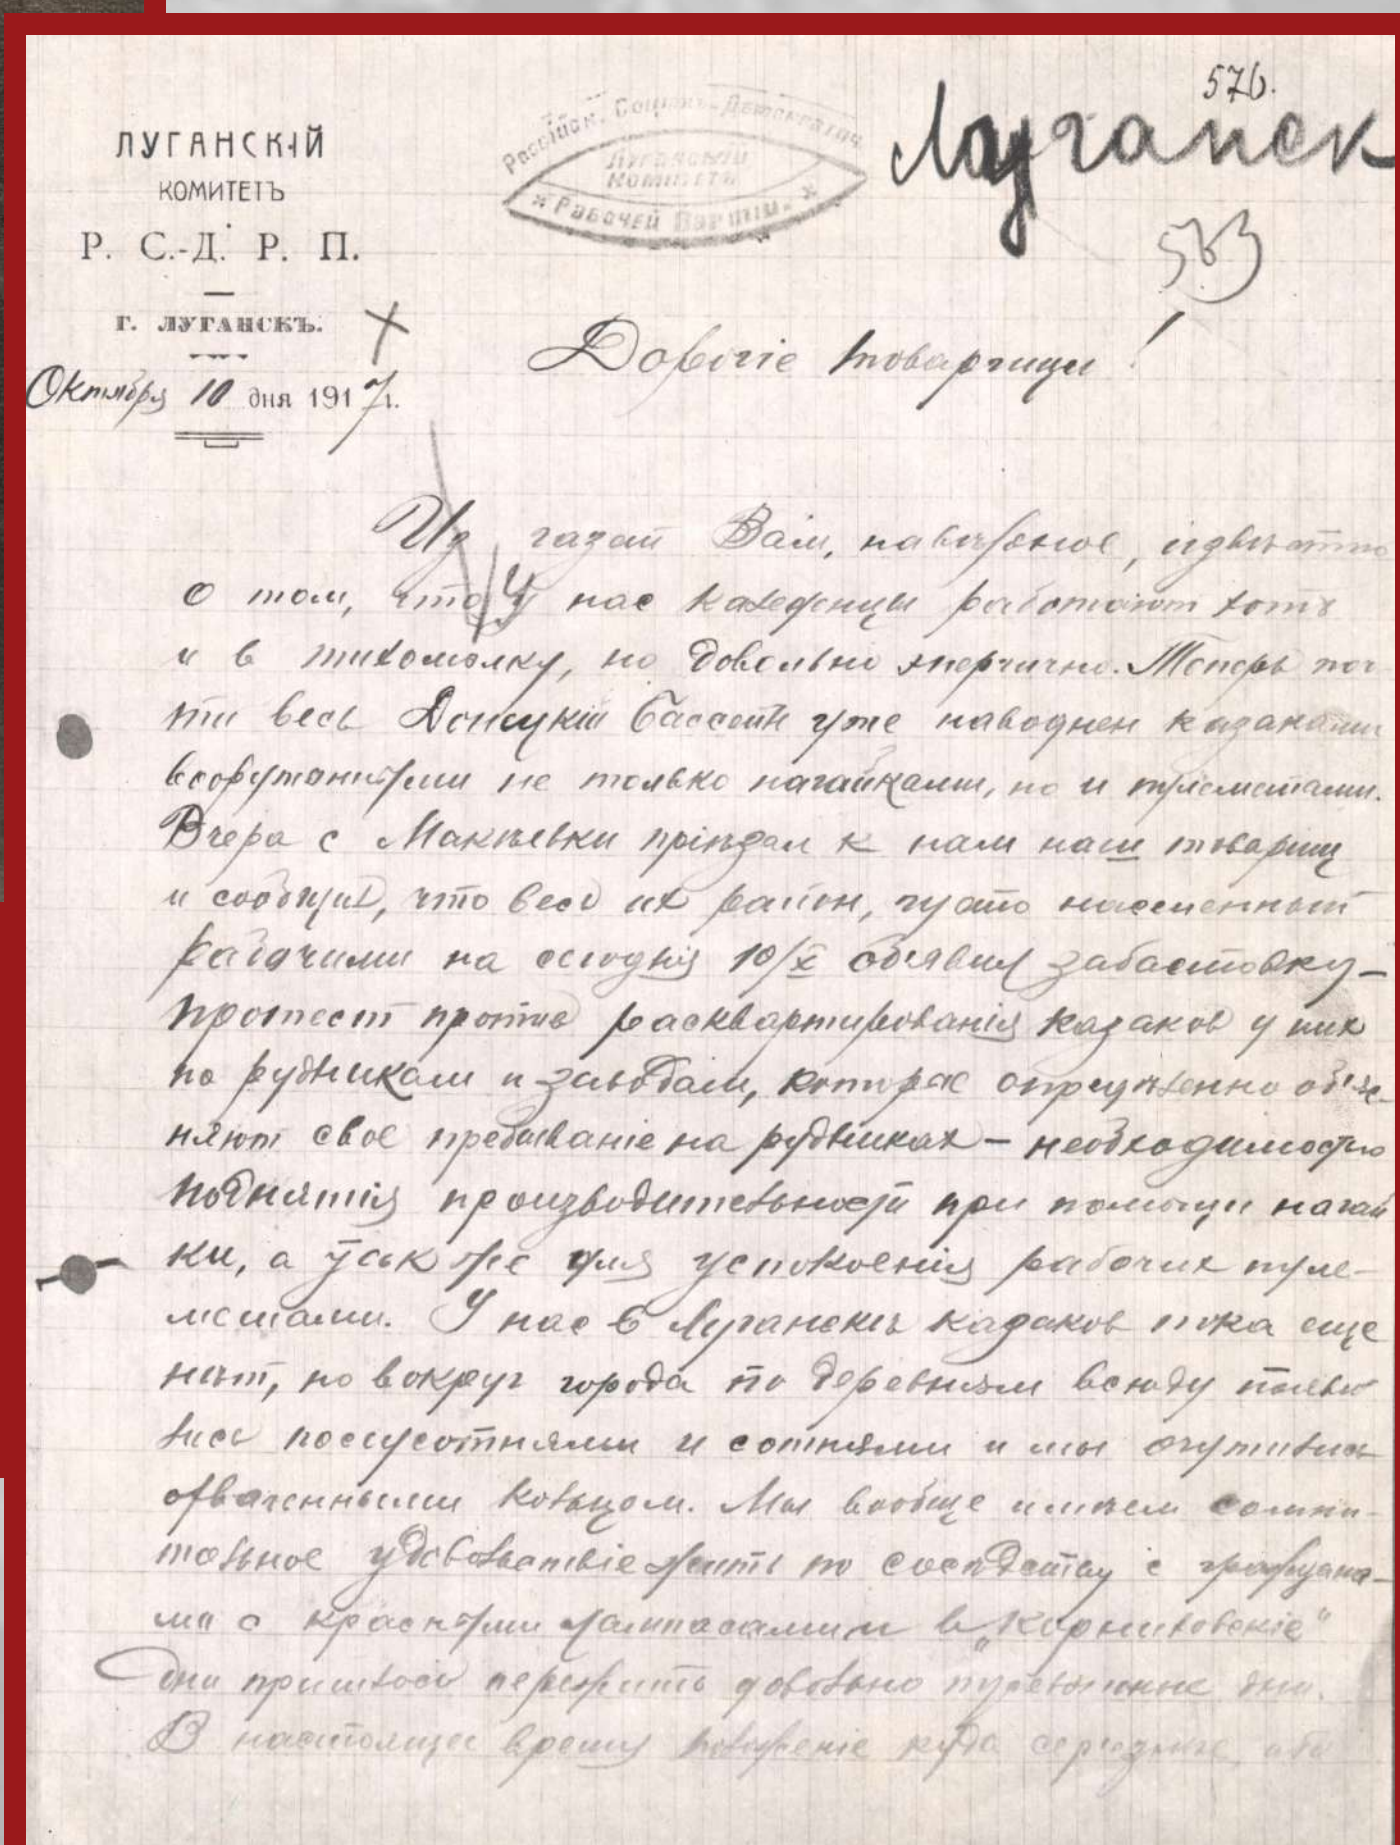 576.
Луганск
ЛУГАНСКІЙ
КОМИТЕТЪ
Р. С.-Д. Р. П.
Г. ЛУГАНСКЪ.
Октября 10 дня 1917 г.
Россійск. Соціалъ-Демократич.
Луганскій
Комитетъ
* Рабочей Партіи. *
Дорогіе товарищи!
Из газет Вам, навѣрное, извѣстно
о том, что у нас каледенцы работают хотя
и в тихомолку, но довольно энергично. Теперь поч-
ти весь Донецкій бассейн уже наводнен казаками
вооруженными не только нагайками, но и пулеметами.
Вчера с Макѣевки пріѣзал к нам наш товарищ
и сообщил, что весь их район, густо населенный
рабочими на сегодня 10/X объявил забастовку –
протест против расквартированія казаков у них
по рудникам и заводам, которые опредѣленно объяс-
няют свое пребываніе на рудниках – необходимостью
поднятія производительности при помощи нагай
ки, а для успокоенія рабочих пуле-
метами. У нас в Луганскѣ казаков пока еще
нѣт, но вокруг города по деревням всюду появи
лись полусотнями и сотнями и мы очутились
охваченными кольцом. Мы вообще имѣем сомни-
тельное удовольствіе жить по сосѣдству с гражана-
ми с красными лампасами и в „Корниловскіе"
дни пришлось пережить довольно тревожные дни.
В настоящее время положеніе куда серьезнѣе,